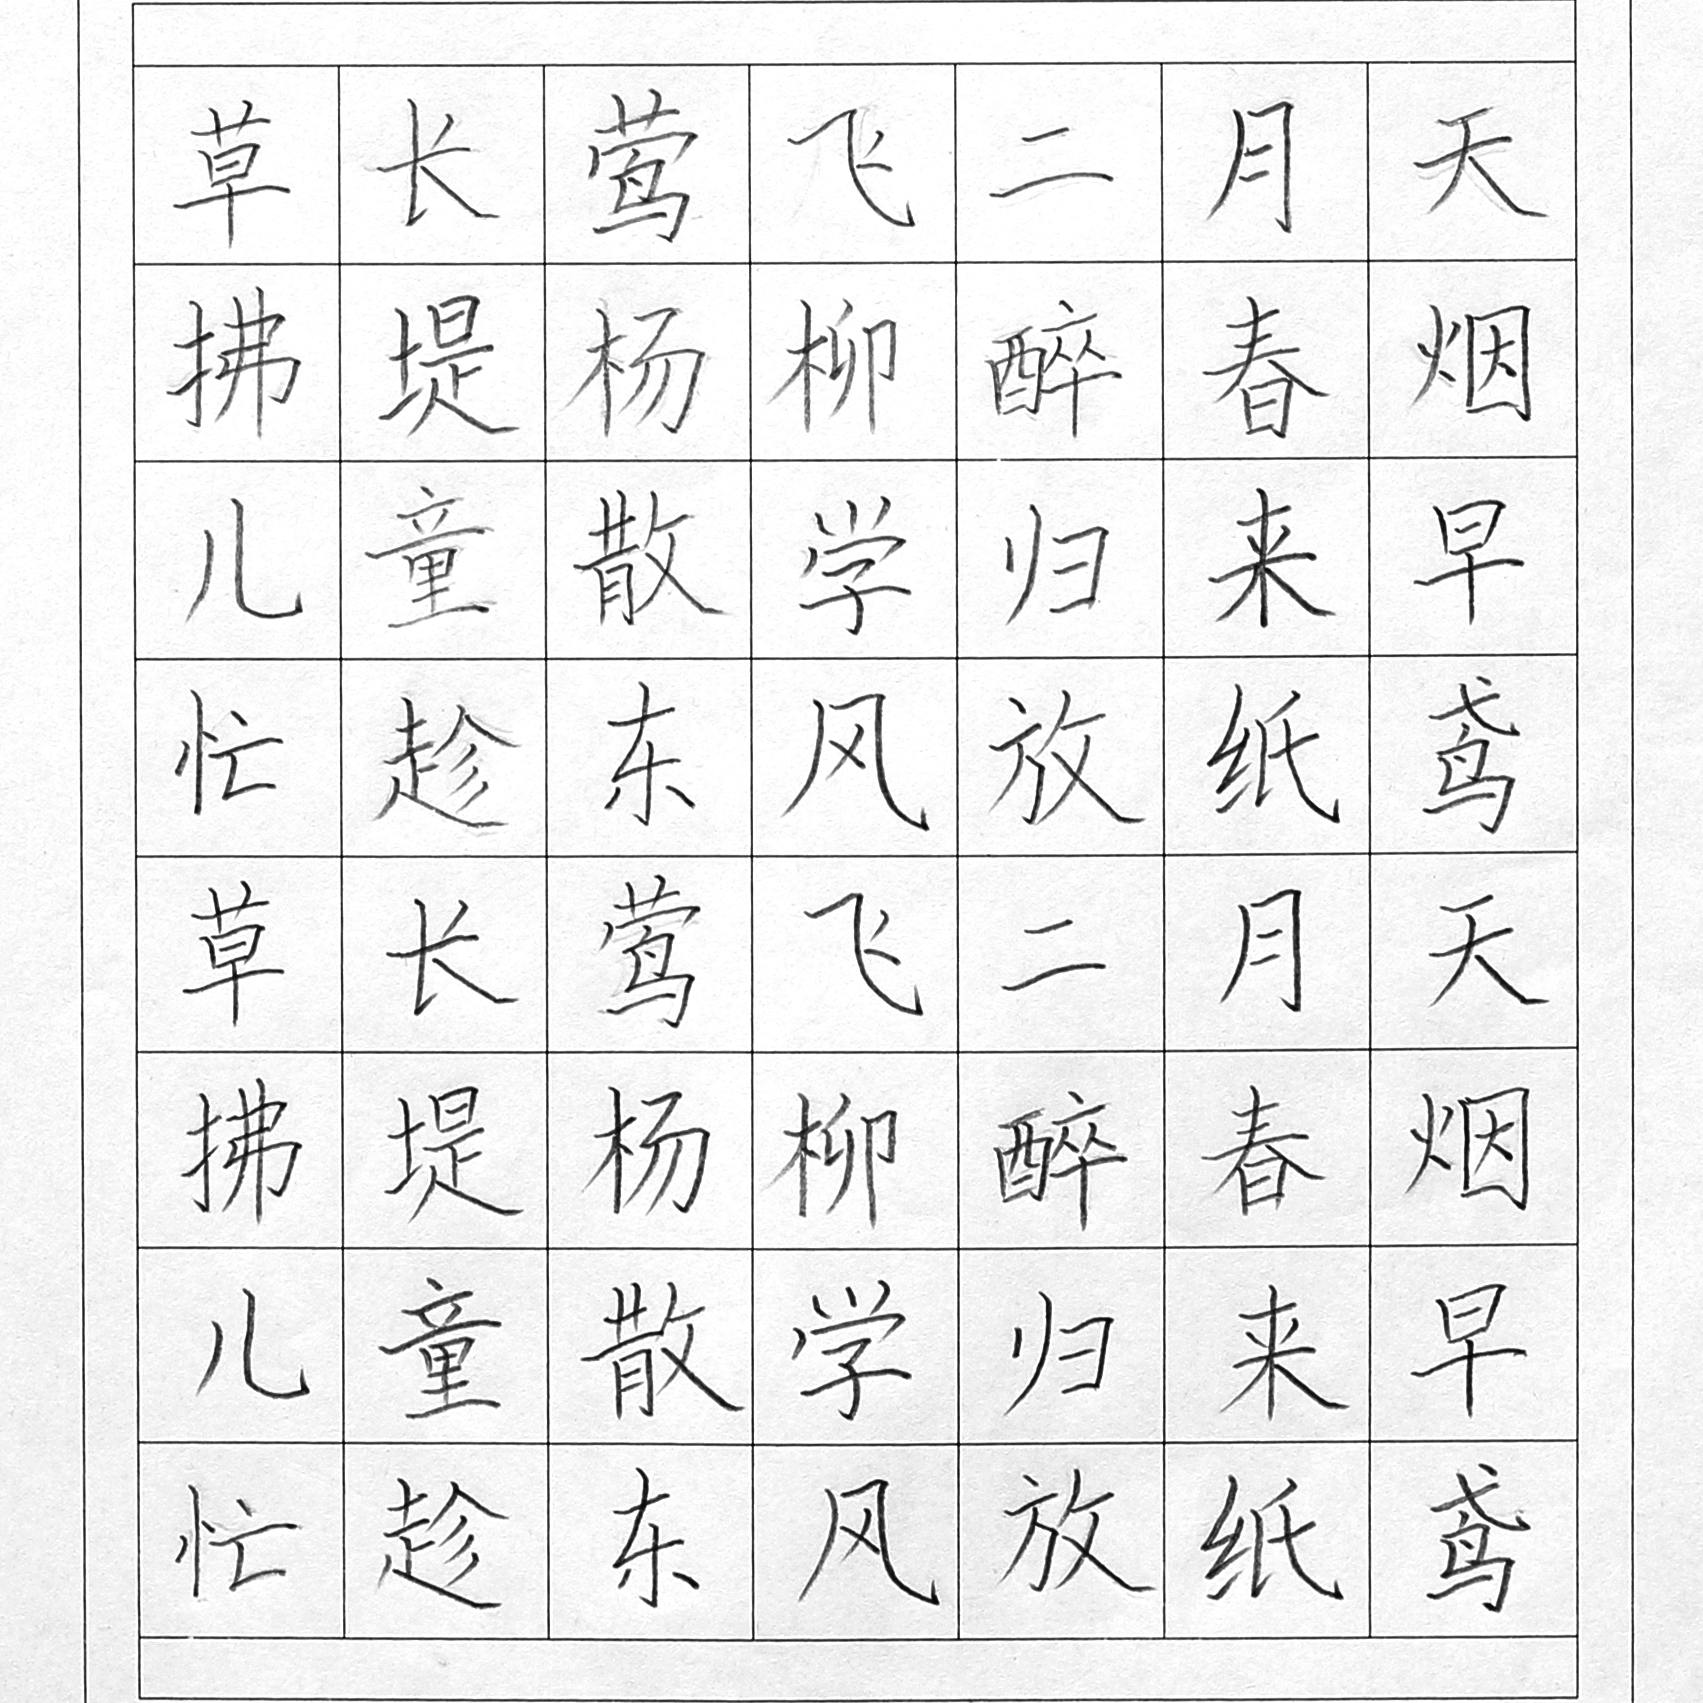 草长莺飞二月天
拂堤杨柳醉春烟
儿童散学归来早
忙趁东风放纸鸢
草长莺飞二月天
拂堤杨柳醉春烟
儿童散学归来早
忙趁东风放纸鸢